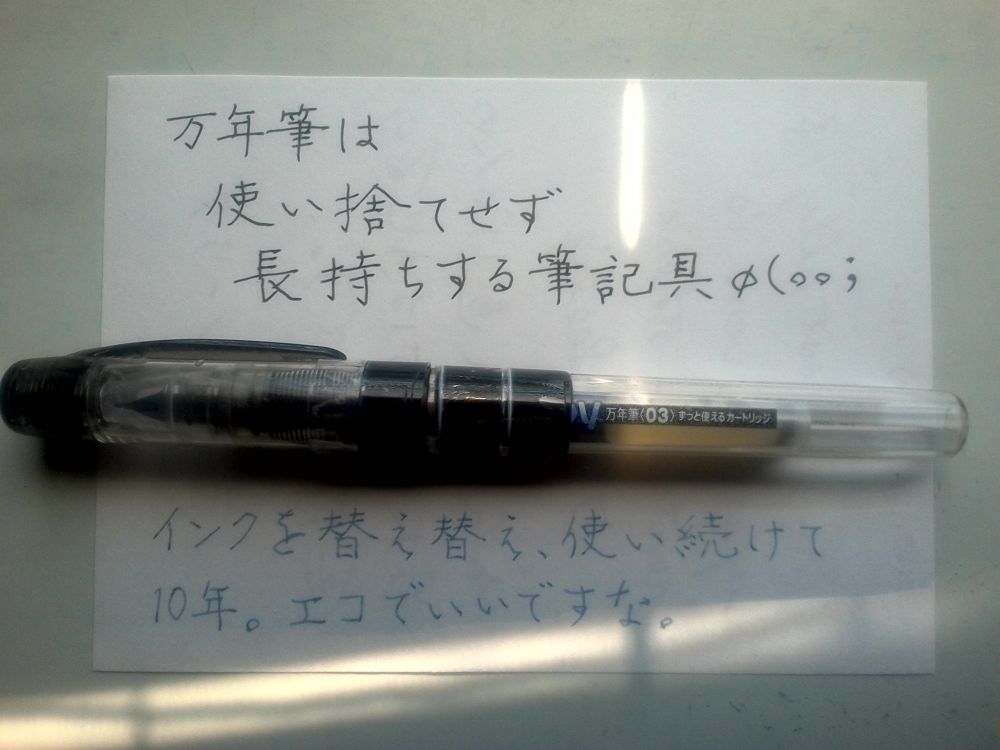 万年筆は
使い捨てせず
長持ちする筆記具φ(。。;
万年筆〈03〉ずっと使えるカートリッジ
インクを替え替え、使い続けて
10年。エコでいいですな。